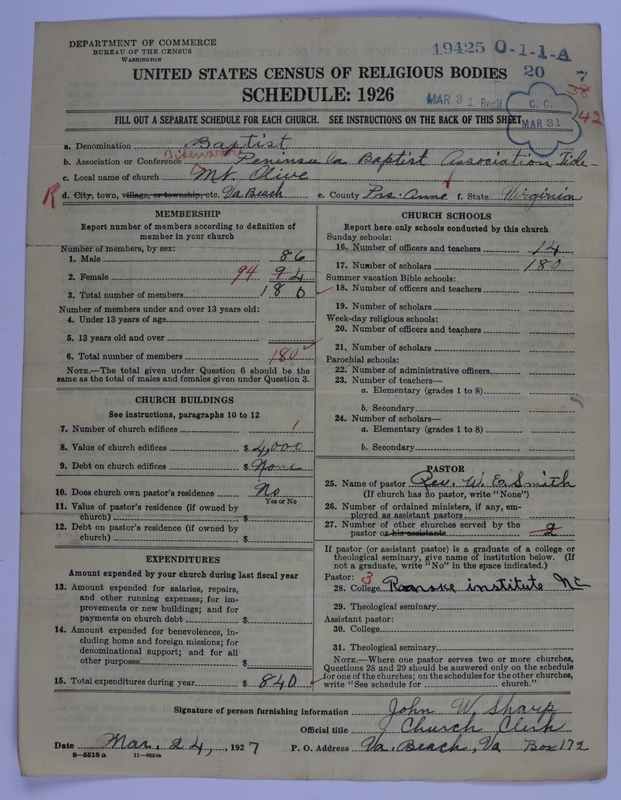 DEPARTMENT OF COMMERCE
BUREAU OF THE CENSUS
WASHINGTON
19425 O-1-1-A
20 7
38
42
MAR 31 Rec'd
C. C.
MAR 31
UNITED STATES CENSUS OF RELIGIOUS BODIES
SCHEDULE: 1926
FILL OUT A SEPARATE SCHEDULE FOR EACH CHURCH. SEE INSTRUCTIONS ON THE BACK OF THIS SHEET
a. Denomination Baptist
b. Association or Conference Peninsula Baptist Association Tide-
c. Local name of church Mt. Olive
R d. City, town, village, or township, etc. Va Beach e. County Prs. Anne f. State Virginia
MEMBERSHIP
Report number of members according to definition of member in your church
Number of members, by sex:
1. Male 86
2. Female 94 94
3. Total number of members 180
Number of members under and over 13 years old:
4. Under 13 years of age
5. 13 years old and over
6. Total number of members 180
NOTE.—The total given under Question 6 should be the
same as the total of males and females given under Question 3.
CHURCH BUILDINGS
See instructions, paragraphs 10 to 12
7. Number of church edifices 1
8. Value of church edifices $ 4,000
9. Debt on church edifices $ None
10. Does church own pastor's residence No
Yes or No
11. Value of pastor's residence (if owned by
church) $
12. Debt on pastor's residence (if owned by
church) $
EXPENDITURES
Amount expended by your church during last fiscal year
13. Amount expended for salaries, repairs,
and other running expenses; for im-
provements or new buildings; and for
payments on church debt $
14. Amount expended for benevolences, in-
cluding home and foreign missions; for
denominational support; and for all
other purposes $
15. Total expenditures during year $ 840
CHURCH SCHOOLS
Report here only schools conducted by this church
Sunday schools:
16. Number of officers and teachers 14
17. Number of scholars 180
Summer vacation Bible schools:
18. Number of officers and teachers
19. Number of scholars
Week-day religious schools:
20. Number of officers and teachers
21. Number of scholars
Parochial schools:
22. Number of administrative officers
23. Number of teachers—
a. Elementary (grades 1 to 8)
b. Secondary
24. Number of scholars—
a. Elementary (grades 1 to 8)
b. Secondary
PASTOR
25. Name of pastor Rev. W. E. Smith
(If church has no pastor, write "None")
26. Number of ordained ministers, if any, em-
ployed as assistant pastors
27. Number of other churches served by the
pastor or his assistants 2
If pastor (or assistant pastor) is a graduate of a college or
theological seminary, give name of institution below. (If
not a graduate, write "No" in the space indicated.)
Pastor: 3
28. College Roanoke institute Nc
29. Theological seminary
Assistant pastor:
30. College
31. Theological seminary
NOTE.—Where one pastor serves two or more churches,
Questions 28 and 29 should be answered only on the schedule
for one of the churches; on the schedules for the other churches,
write "See schedule for church."
Signature of person furnishing information John W. Sharp
Official title Church Clerk
Date Mar. 24, 1927 P. O. Address Va. Beach, Va Box 172
8—5518 a 11—9024a